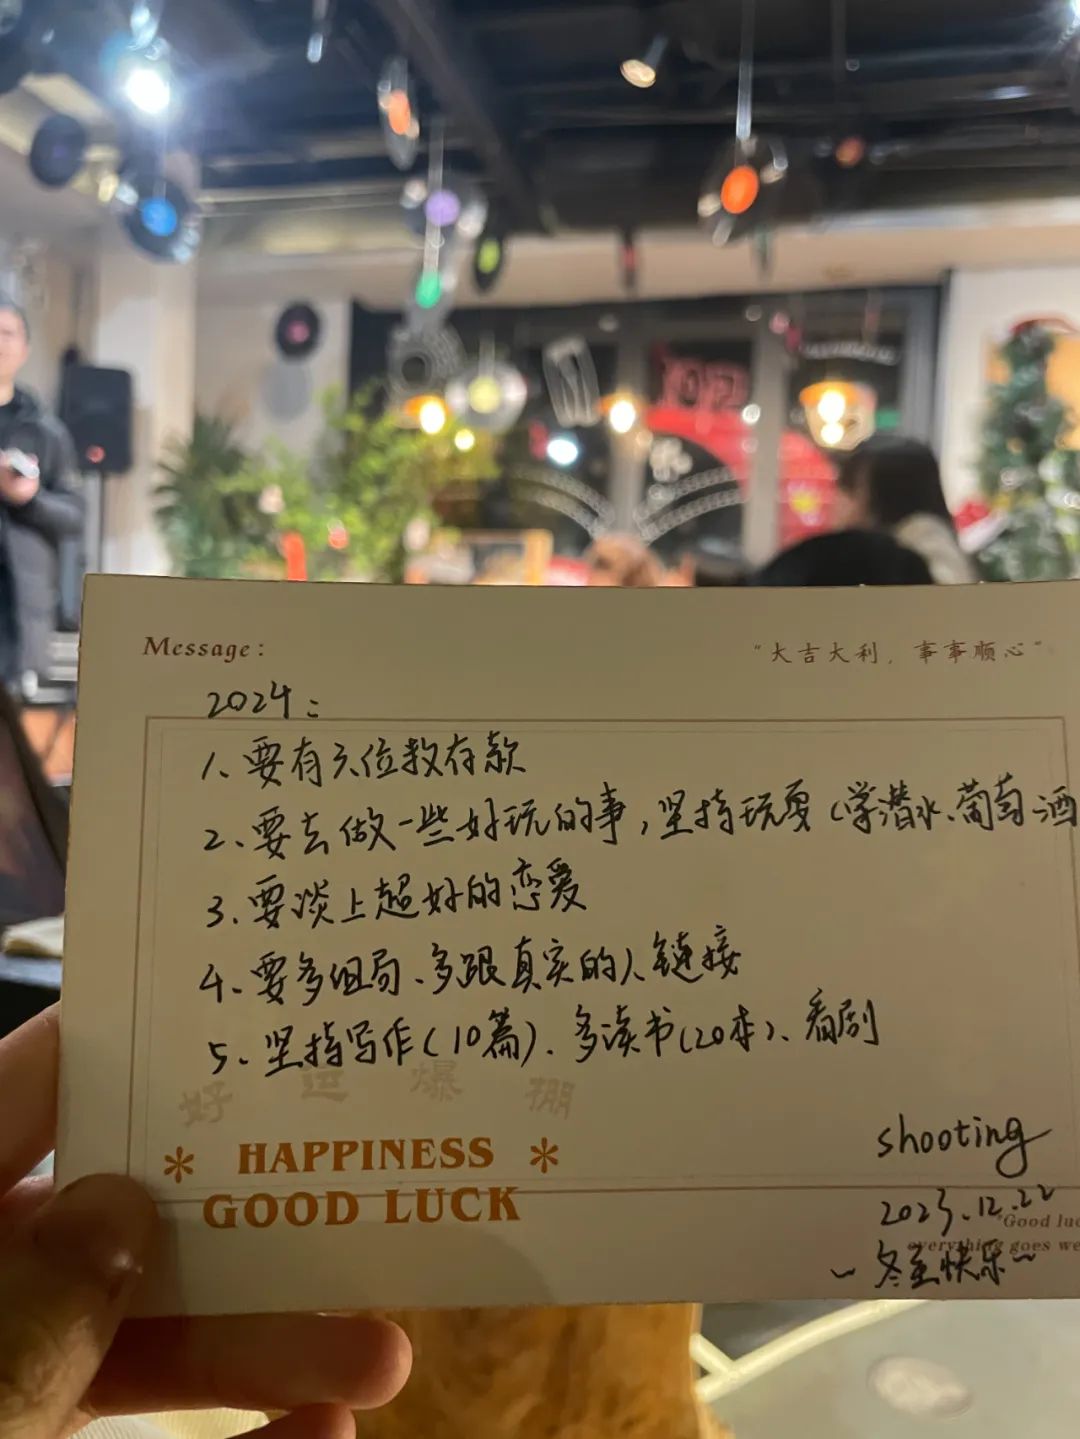 Message:
"大吉大利，事事顺心"
2024：
1、要有六位数存款
2、要去做一些好玩的事，坚持玩耍（学潜水、葡萄酒
3、要谈上超好的恋爱
4、要多组局、多跟真实的人链接
5、坚持写作（10篇）、多读书（20本）、看剧
好运爆棚
* HAPPINESS *
GOOD LUCK
shooting
2023.12.22
"Good luc
everything goes we
~冬至快乐~